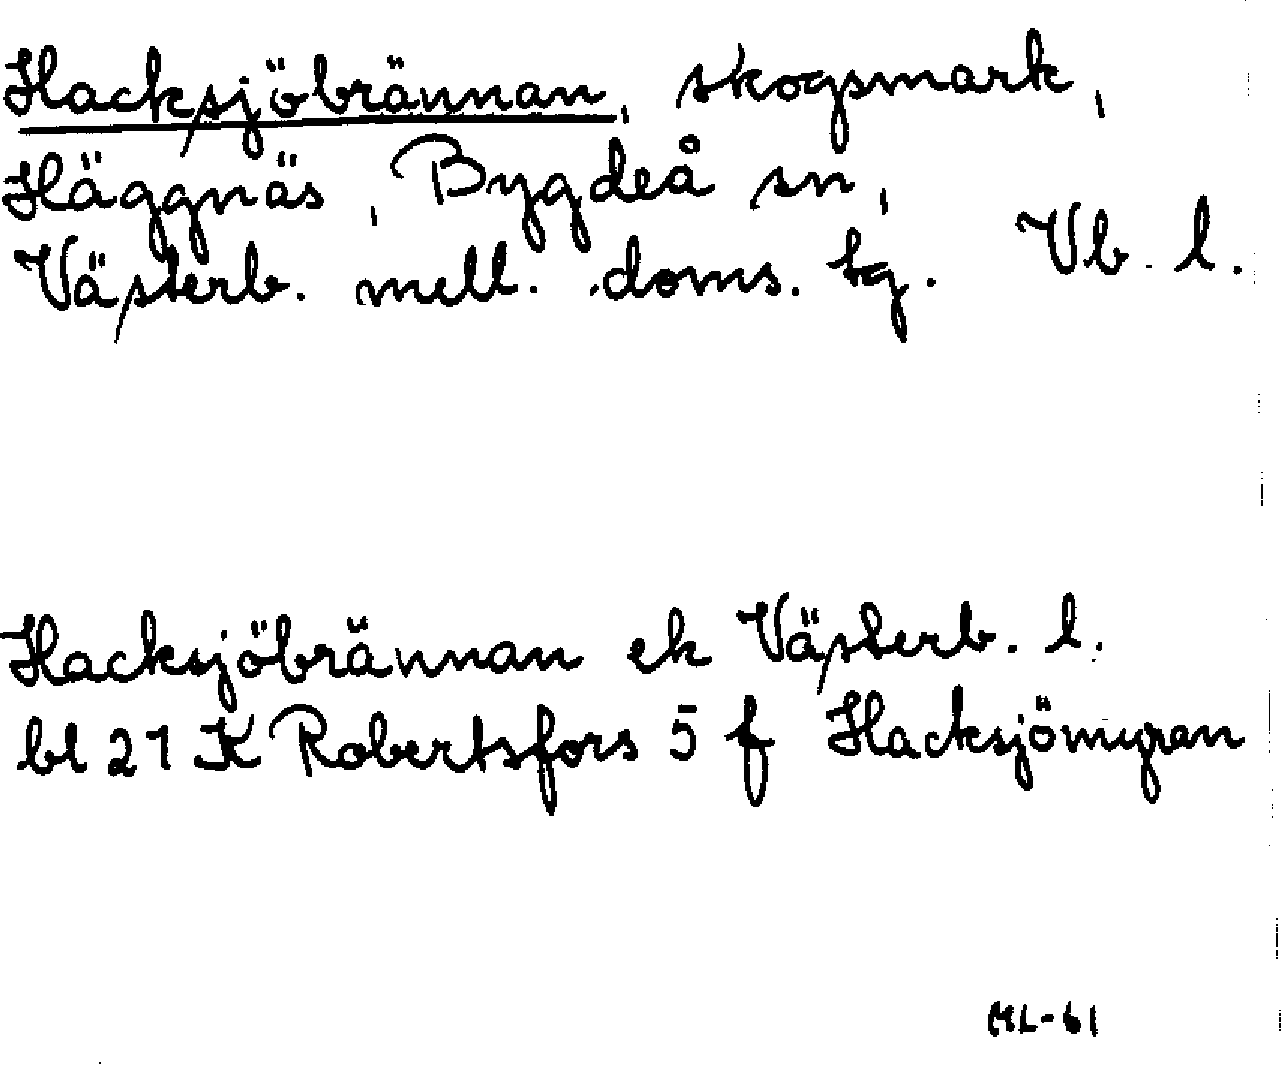 Hacksjöbrännan, skogsmark,
Häggnäs, Bygdeå sn,
Västerb. mell. doms. tg. Vb. l.
Hacksjöbrännan ek Västerb. l.
bl 21 K Robertsfors 5 f Hacksjömyran
ML-61